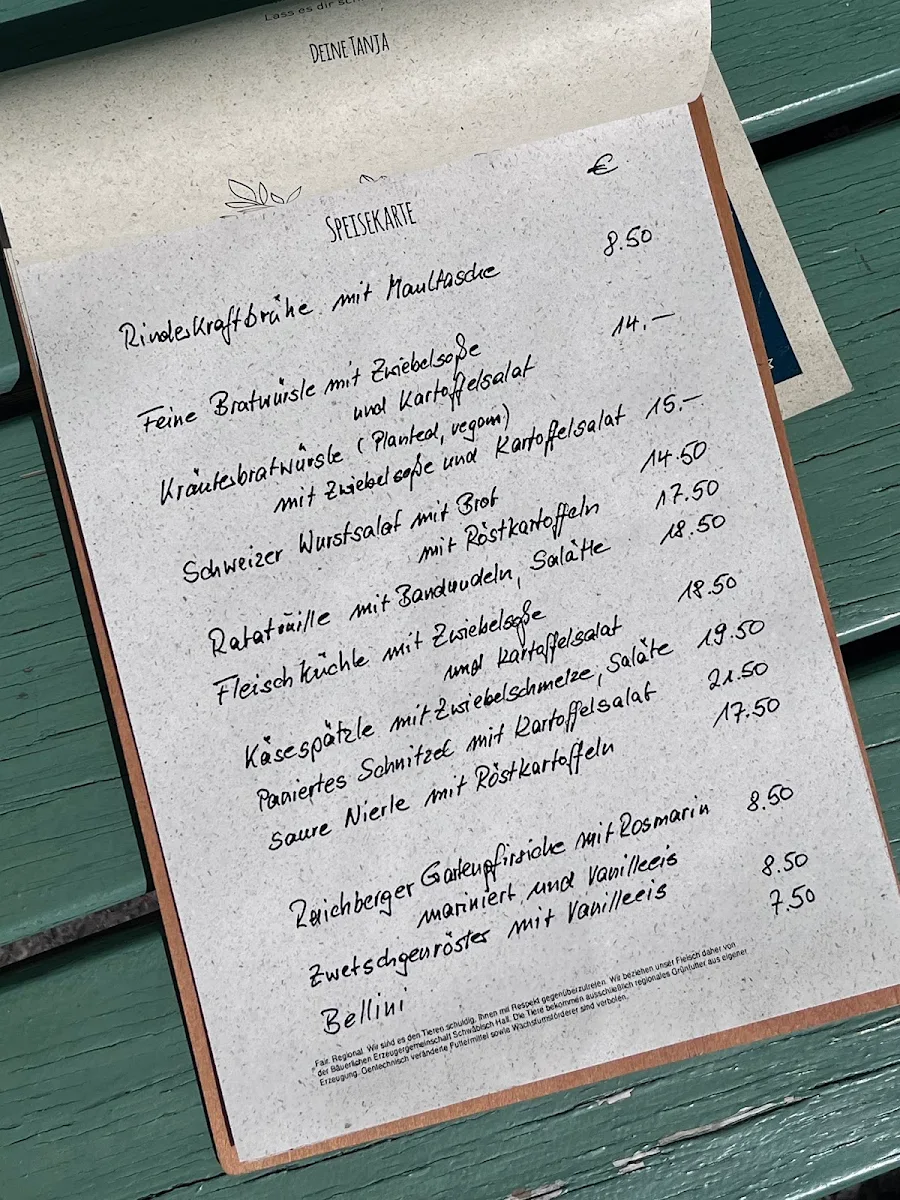 Lass es dir
DEINE TANJA
€
SPEISEKARTE
Rinderkraftbrühe mit Maultasche 8.50
Feine Bratwürstle mit Zwiebelsoße 14.–
und Kartoffelsalat
Kräuterbratwürstle (Planted, vegan)
mit Zwiebelsoße und Kartoffelsalat 15.–
Schweizer Wurstsalat mit Brot 14.50
mit Röstkartoffeln 17.50
Ratatouille mit Bandnudeln, Salätle 18.50
Fleischküchle mit Zwiebelsoße
und Kartoffelsalat 18.50
Käsespätzle mit Zwiebelschmelze, Salätle 19.50
Paniertes Schnitzel mit Kartoffelsalat 21.50
Saure Nierle mit Röstkartoffeln 17.50
Reichberger Gartenpfirsiche mit Rosmarin 8.50
mariniert und Vanilleeis
Zwetschgenröster mit Vanilleeis 8.50
Bellini 7.50
Fair. Regional. Wir sind es den Tieren schuldig, Ihnen mit Respekt gegenüberzutreten. Wir beziehen unser Fleisch daher von
der Bäuerlichen Erzeugergemeinschaft Schwäbisch Hall. Die Tiere bekommen ausschließlich regionales Grünfutter aus eigener
Erzeugung. Gentechnisch veränderte Futtermittel sowie Wachstumsförderer sind verboten.